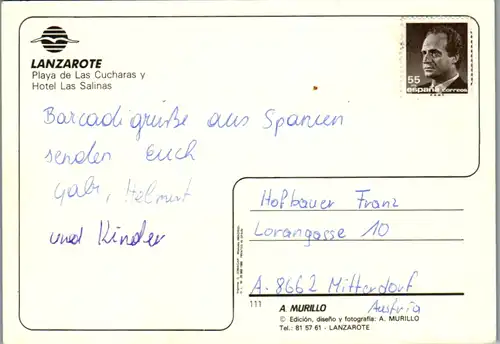 LANZAROTE
Playa de Las Cucharas y
Hotel Las Salinas
55
españa correos
Barcadigrüße aus Spanien
senden Euch
Gabi, Helmut
und Kinder
Hofbauer Franz
Lorangasse 10
A-8662 Mitterdorf
Austria
111
A. MURILLO
© Edición, diseño y fotografía: A. MURILLO
Tel.: 81 57 61 - LANZAROTE